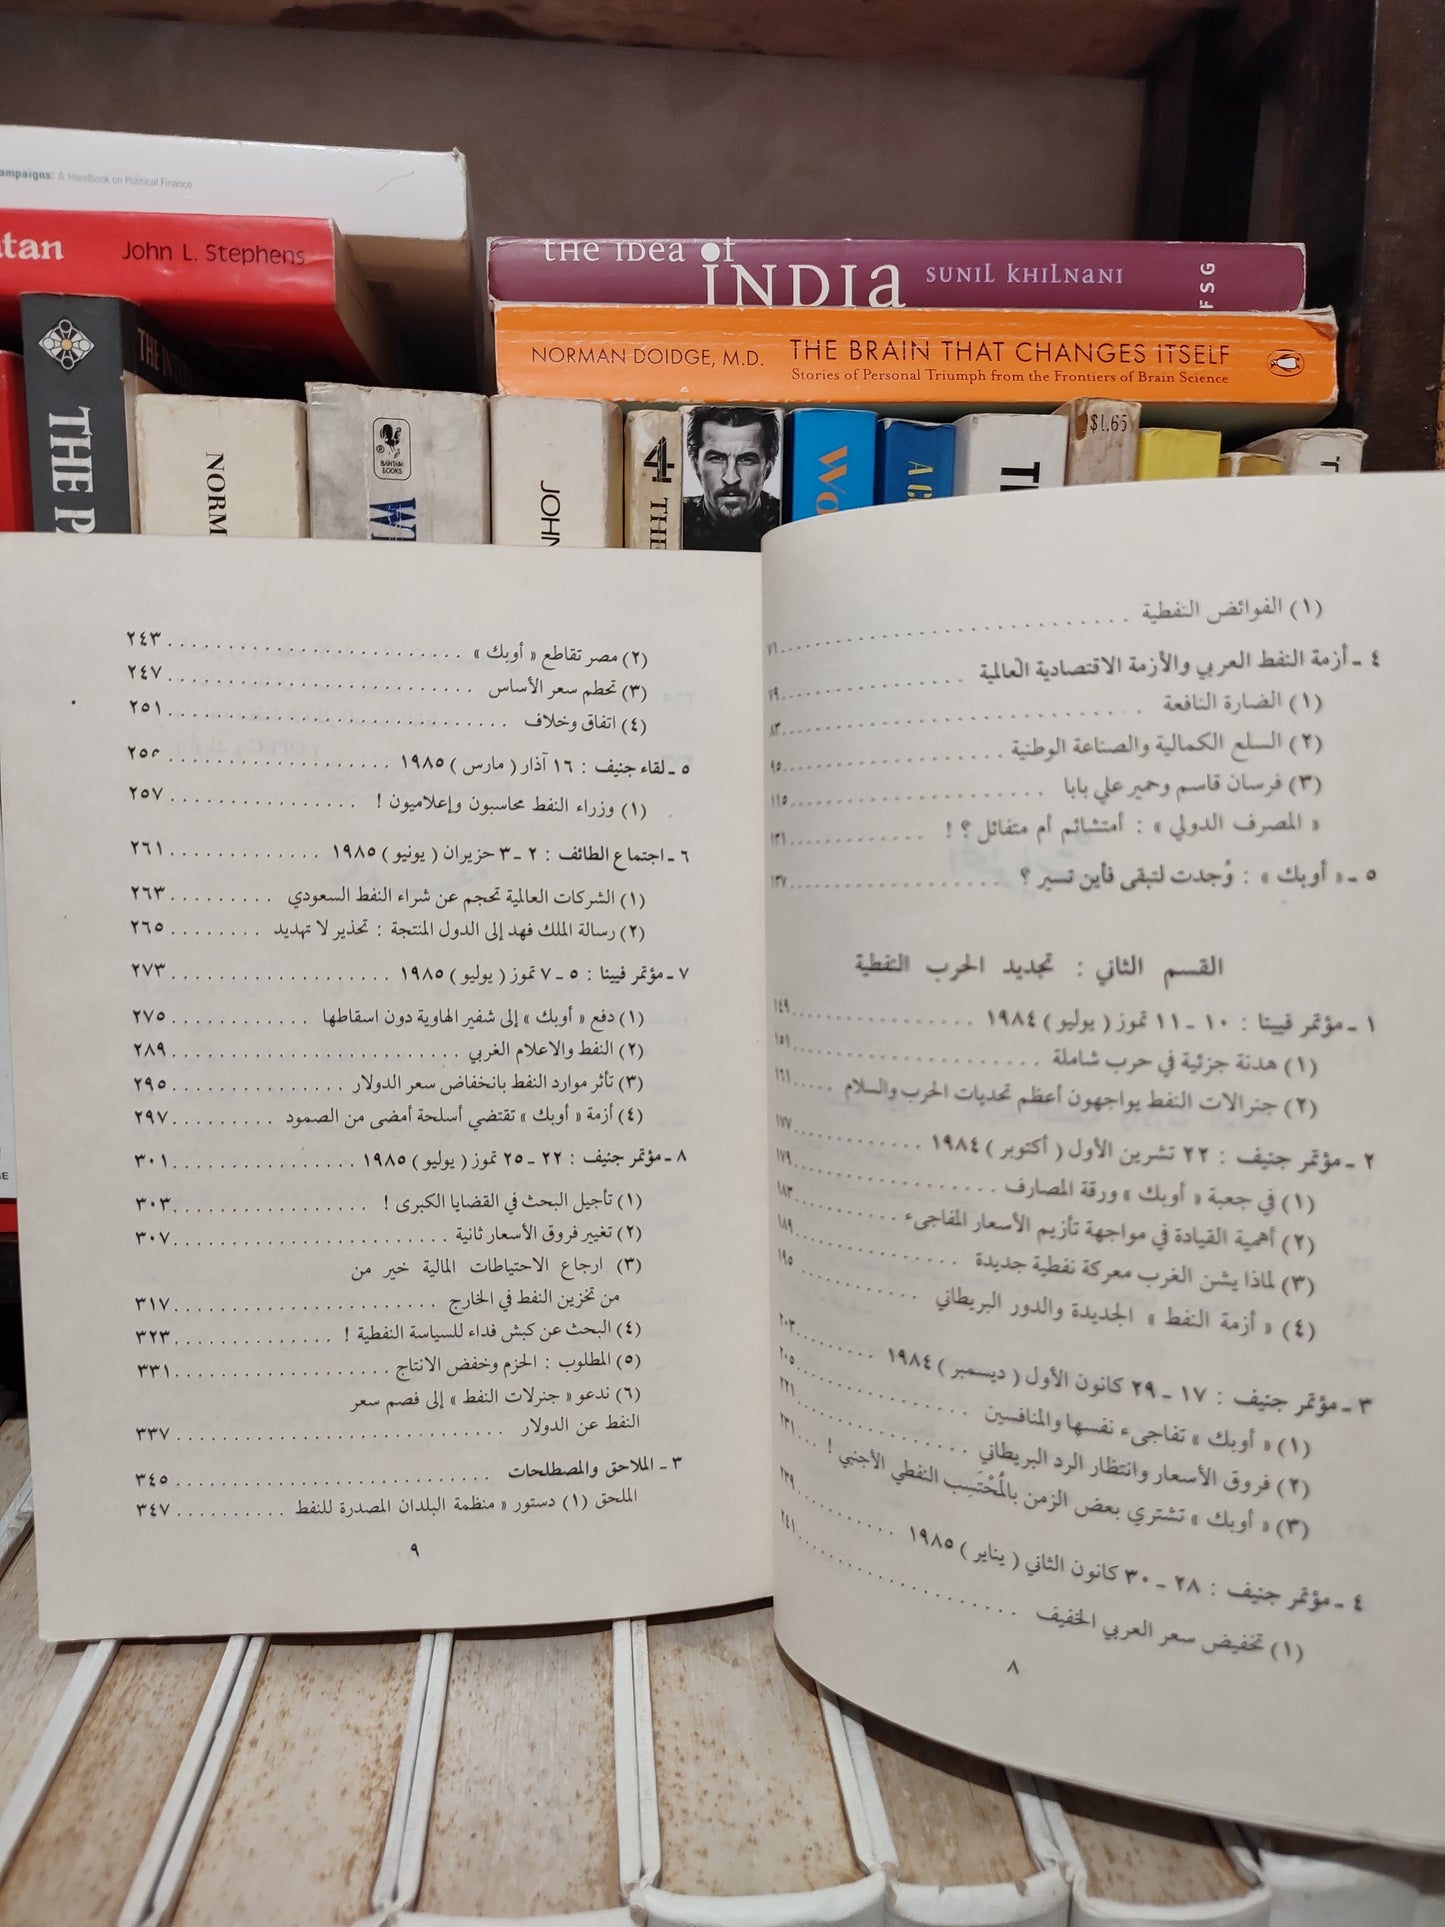 ampaigns: A Handbook on Political Finance
tan John L. Stephens
the idea of
INDIA SUNIL KHILNANI FSG
NORMAN DOIDGE, M.D. THE BRAIN THAT CHANGES ITSELF
Stories of Personal Triumph from the Frontiers of Brain Science
THE P
THE INTER
NORM
BANTAM
BOOKS
WI
JOHN
4 THE
Wo
A C
T
$1.65
(١) الفوائض النفطية ........ ٧١
٤ ـ أزمة النفط العربي والأزمة الاقتصادية العالمية ........ ٧٩
(١) الضارة النافعة ........ ٨٣
(٢) السلع الكمالية والصناعة الوطنية ........ ٩٥
(٣) فرسان قاسم وحمير علي بابا ........ ١١٥
« المصرف الدولي » : أمتشائم أم متفائل ؟ ! ........ ١٣١
٥ ـ « أوبك » : وُجدت لتبقى فأين تسير ؟ ........ ١٣٧
القسم الثاني : تجديد الحرب النفطية
١ ـ مؤتمر فيينا : ١٠ ـ ١١ تموز ( يوليو ) ١٩٨٤ ........ ١٤٩
(١) هدنة جزئية في حرب شاملة ........ ١٥١
(٢) جنرالات النفط يواجهون أعظم تحديات الحرب والسلام ........ ١٦١
٢ ـ مؤتمر جنيف : ٢٢ تشرين الأول ( أكتوبر ) ١٩٨٤ ........ ١٧٧
(١) في جعبة « أوبك » ورقة المصارف ........ ١٧٩
(٢) أهمية القيادة في مواجهة تأزيم الأسعار المفاجىء ........ ١٨٣
(٣) لماذا يشن الغرب معركة نفطية جديدة ........ ١٨٩
(٤) « أزمة النفط » الجديدة والدور البريطاني ........ ١٩٥
٣ ـ مؤتمر جنيف : ١٧ ـ ٢٩ كانون الأول ( ديسمبر ) ١٩٨٤ ........ ٢٠٣
(١) « أوبك » تفاجىء نفسها والمنافسين ........ ٢٠٥
(٢) فروق الأسعار وانتظار الرد البريطاني ........ ٢٢١
(٣) « أوبك » تشتري بعض الزمن بالمُحْتَسِب النفطي الأجنبي ! ... ٢٣١
٤ ـ مؤتمر جنيف : ٢٨ ـ ٣٠ كانون الثاني ( يناير ) ١٩٨٥ ........ ٢٣٩
(١) تخفيض سعر العربي الخفيف ........ ٢٤١
٨
(٢) مصر تقاطع « أوبك » ........ ٢٤٣
(٣) تحطم سعر الأساس ........ ٢٤٧
(٤) اتفاق وخلاف ........ ٢٥١
٥ ـ لقاء جنيف : ١٦ آذار ( مارس ) ١٩٨٥ ........ ٢٥٥
(١) وزراء النفط محاسبون وإعلاميون ! ........ ٢٥٧
٦ ـ اجتماع الطائف : ٢ ـ ٣ حزيران ( يونيو ) ١٩٨٥ ........ ٢٦١
(١) الشركات العالمية تحجم عن شراء النفط السعودي ........ ٢٦٣
(٢) رسالة الملك فهد إلى الدول المنتجة : تحذير لا تهديد ........ ٢٦٥
٧ ـ مؤتمر فيينا : ٥ ـ ٧ تموز ( يوليو ) ١٩٨٥ ........ ٢٧٣
(١) دفع « أوبك » إلى شفير الهاوية دون اسقاطها ........ ٢٧٥
(٢) النفط والاعلام الغربي ........ ٢٨٩
(٣) تأثر موارد النفط بانخفاض سعر الدولار ........ ٢٩٥
(٤) أزمة « أوبك » تقتضي أسلحة أمضى من الصمود ........ ٢٩٧
٨ ـ مؤتمر جنيف : ٢٢ ـ ٢٥ تموز ( يوليو ) ١٩٨٥ ........ ٣٠١
(١) تأجيل البحث في القضايا الكبرى ! ........ ٣٠٣
(٢) تغيير فروق الأسعار ثانية ........ ٣٠٧
(٣) ارجاع الاحتياطات المالية خير من
من تخزين النفط في الخارج ........ ٣١٧
(٤) البحث عن كبش فداء للسياسة النفطية ! ........ ٣٢٣
(٥) المطلوب : الحزم وخفض الانتاج ........ ٣٣١
(٦) ندعو « جنرلات النفط » إلى فصم سعر
النفط عن الدولار ........ ٣٣٧
٣ ـ الملاحق والمصطلحات ........ ٣٤٥
الملحق (١) دستور « منظمة البلدان المصدرة للنفط ........ ٣٤٧
٩